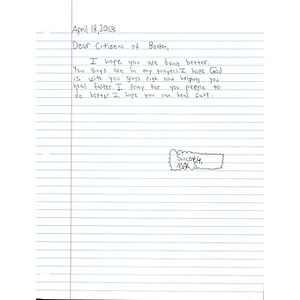 April 18, 2013
Dear Citizens of Boston,
I hope you are doing better.
You guys are in my prayers. I hope God
is with you guys right now helping you
heal faster. I pray for you people to
do better. I hope you can heal fast.
Sincerely,